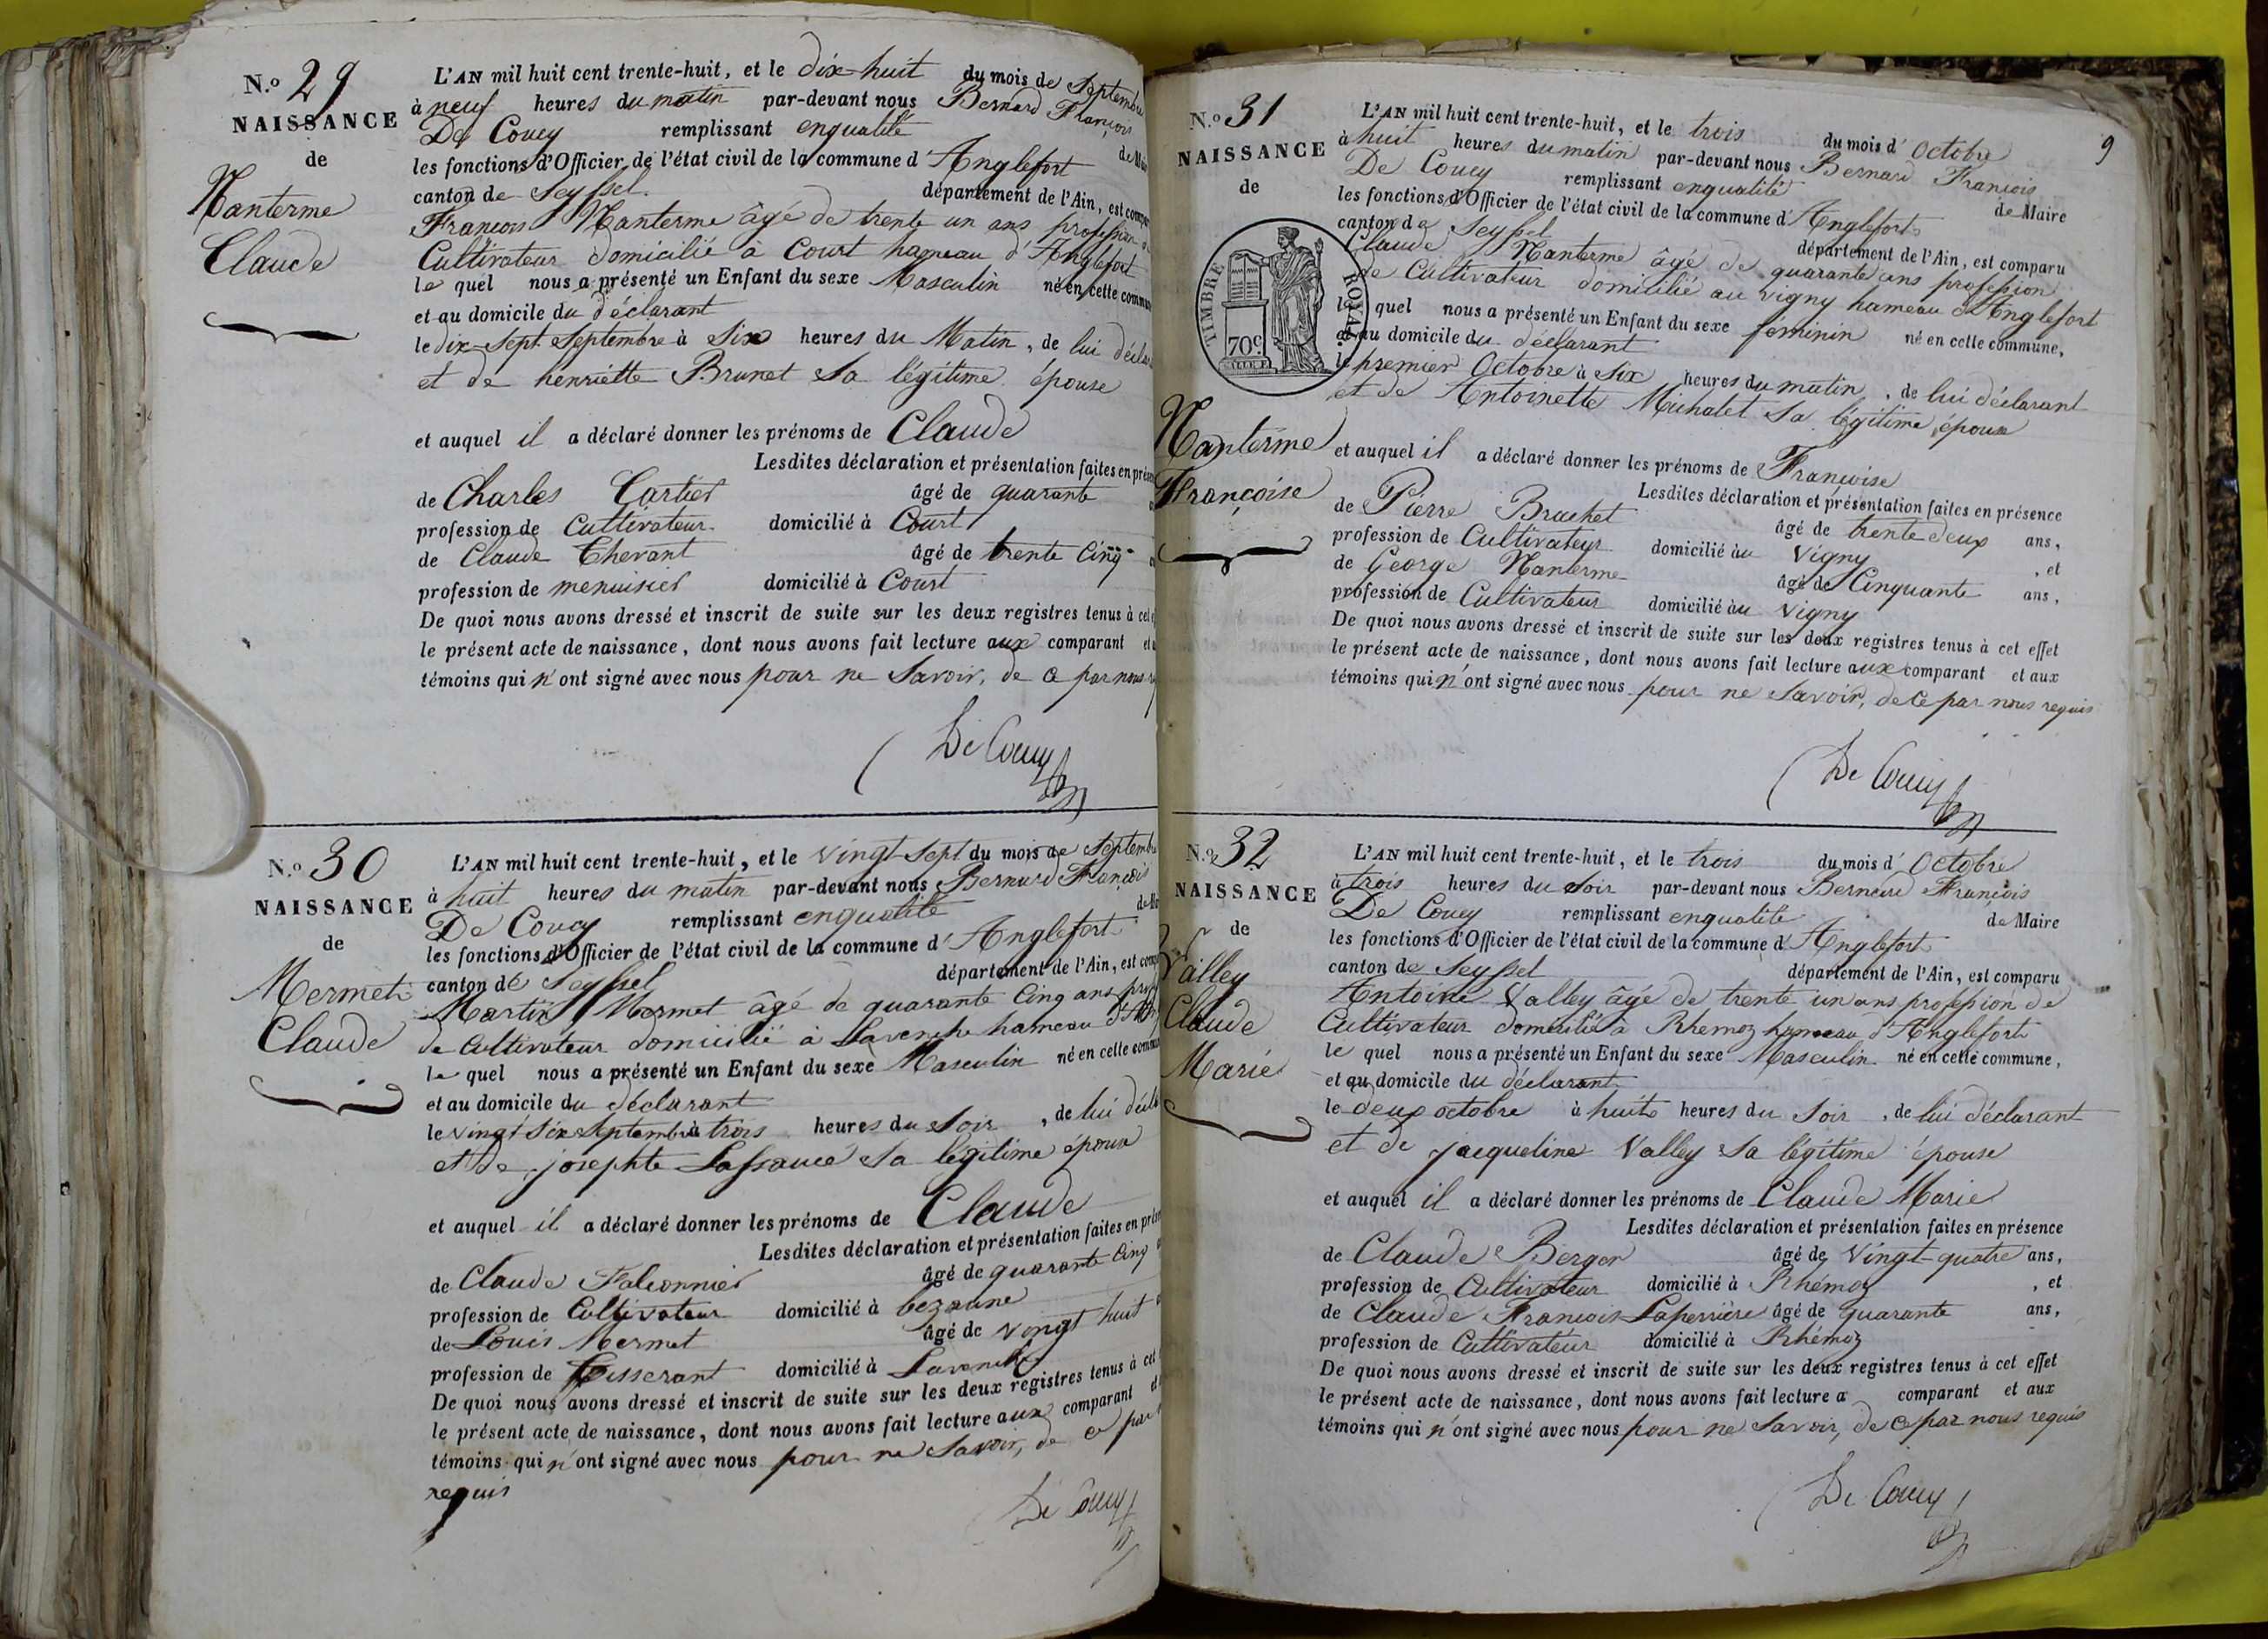 N.o 29
NAISSANCE
de
Nanterme
Claude
L'AN mil huit cent trente-huit, et le dix-huit du mois de Septembre
à neuf heures du matin par-devant nous Bernard François
De Coucy remplissant en qualité de Mai
les fonctions d'Officier de l'état civil de la commune d'Anglefort
canton de Seyssel département de l'Ain, est compar
François Nanterme âgé de trente un ans profession
Cultivateur domicilié à Court hameau d'Anglefort
le quel nous a présenté un Enfant du sexe Masculin né en cette commun
et au domicile du déclarant
le dix-Sept Septembre à Six heures du Matin, de lui décla
et de henriette Brunet Sa légitime épouse
et auquel il a déclaré donner les prénoms de Claude
Lesdites déclaration et présentation faites en prése
de Charles Cartier âgé de quarante
profession de Cultivateur domicilié à Court
de Claude Thevant âgé de trente Cinq
profession de menuisier domicilié à Court
De quoi nous avons dressé et inscrit de suite sur les deux registres tenus à cet
le présent acte de naissance, dont nous avons fait lecture aux comparant et a
témoins qui n'ont signé avec nous pour ne Savoir, de ce par nous
De Coucy
N.o 30
NAISSANCE
de
Mermet
Claude
L'AN mil huit cent trente-huit, et le vingt-Sept du mois de Septembre
à huit heures du matin par-devant nous Bernard François
De Coucy remplissant en qualité de Ma
les fonctions d'Officier de l'état civil de la commune d'Anglefort
canton de Seyssel département de l'Ain, est comp
Martin Mermet âgé de quarante Cinq ans pro
de Cultivateur domicilié à Lavenche hameau d'An
le quel nous a présenté un Enfant du sexe Masculin né en cette commun
et au domicile du déclarant
le vingt Six Septembre à trois heures du Soir, de lui décla
et de josephte Lassauce Sa légitime épouse
et auquel il a déclaré donner les prénoms de Claude
Lesdites déclaration et présentation faites en prése
de Claude Falconnier âgé de quarante Cinq
profession de Cultivateur domicilié à bezonne
de Louis Mermet âgé de vingt huit
profession de Tisserant domicilié à Lavenche
De quoi nous avons dressé et inscrit de suite sur les deux registres tenus à cet
le présent acte de naissance, dont nous avons fait lecture aux comparant et
témoins qui n'ont signé avec nous pour ne Savoir, de ce par
requis
De Coucy
9
N.o 31
NAISSANCE
de
TIMBRE ROYAL
70c
Nanterme
Françoise
L'AN mil huit cent trente-huit, et le trois du mois d'Octobre
à huit heures du matin par-devant nous Bernard François
De Coucy remplissant en qualité de Maire
les fonctions d'Officier de l'état civil de la commune d'Anglefort
canton de Seyssel département de l'Ain, est comparu
Claude Nanterme âgé de quarante ans profession
de Cultivateur domicilié au vigny hameau d'Anglefort
le quel nous a présenté un Enfant du sexe féminin né en cette commune,
et au domicile du déclarant
le premier Octobre à Six heures du matin, de lui déclarant
et de Antoinette Michalet Sa légitime épouse
et auquel il a déclaré donner les prénoms de Françoise
Lesdites déclaration et présentation faites en présence
de Pierre Bruchet âgé de trente deux ans,
profession de Cultivateur domicilié au vigny, et
de George Nanterme âgé de Cinquante ans,
profession de Cultivateur domicilié au vigny
De quoi nous avons dressé et inscrit de suite sur les deux registres tenus à cet effet
le présent acte de naissance, dont nous avons fait lecture aux comparant et aux
témoins qui n'ont signé avec nous pour ne Savoir, de ce par nous requis
De Coucy
N.o 32
NAISSANCE
de
Valley
Claude
Marie
L'AN mil huit cent trente-huit, et le trois du mois d'Octobre
à trois heures du Soir par-devant nous Bernard François
De Coucy remplissant en qualité de Maire
les fonctions d'Officier de l'état civil de la commune d'Anglefort
canton de Seyssel département de l'Ain, est comparu
Antoine Valley âgé de trente un ans profession de
Cultivateur domicilié à Rhemoz hameau d'Anglefort
le quel nous a présenté un Enfant du sexe Masculin né en cette commune,
et au domicile du déclarant
le deux octobre à huit heures du Soir, de lui déclarant
et de jacqueline Valley Sa légitime épouse
et auquel il a déclaré donner les prénoms de Claude Marie
Lesdites déclaration et présentation faites en présence
de Claude Berger âgé de Vingt-quatre ans,
profession de Cultivateur domicilié à Rhémoz, et
de Claude François Laperrière âgé de quarante ans,
profession de Cultivateur domicilié à Rhémoz
De quoi nous avons dressé et inscrit de suite sur les deux registres tenus à cet effet
le présent acte de naissance, dont nous avons fait lecture a comparant et aux
témoins qui n'ont signé avec nous pour ne Savoir, de ce par nous requis
De Coucy